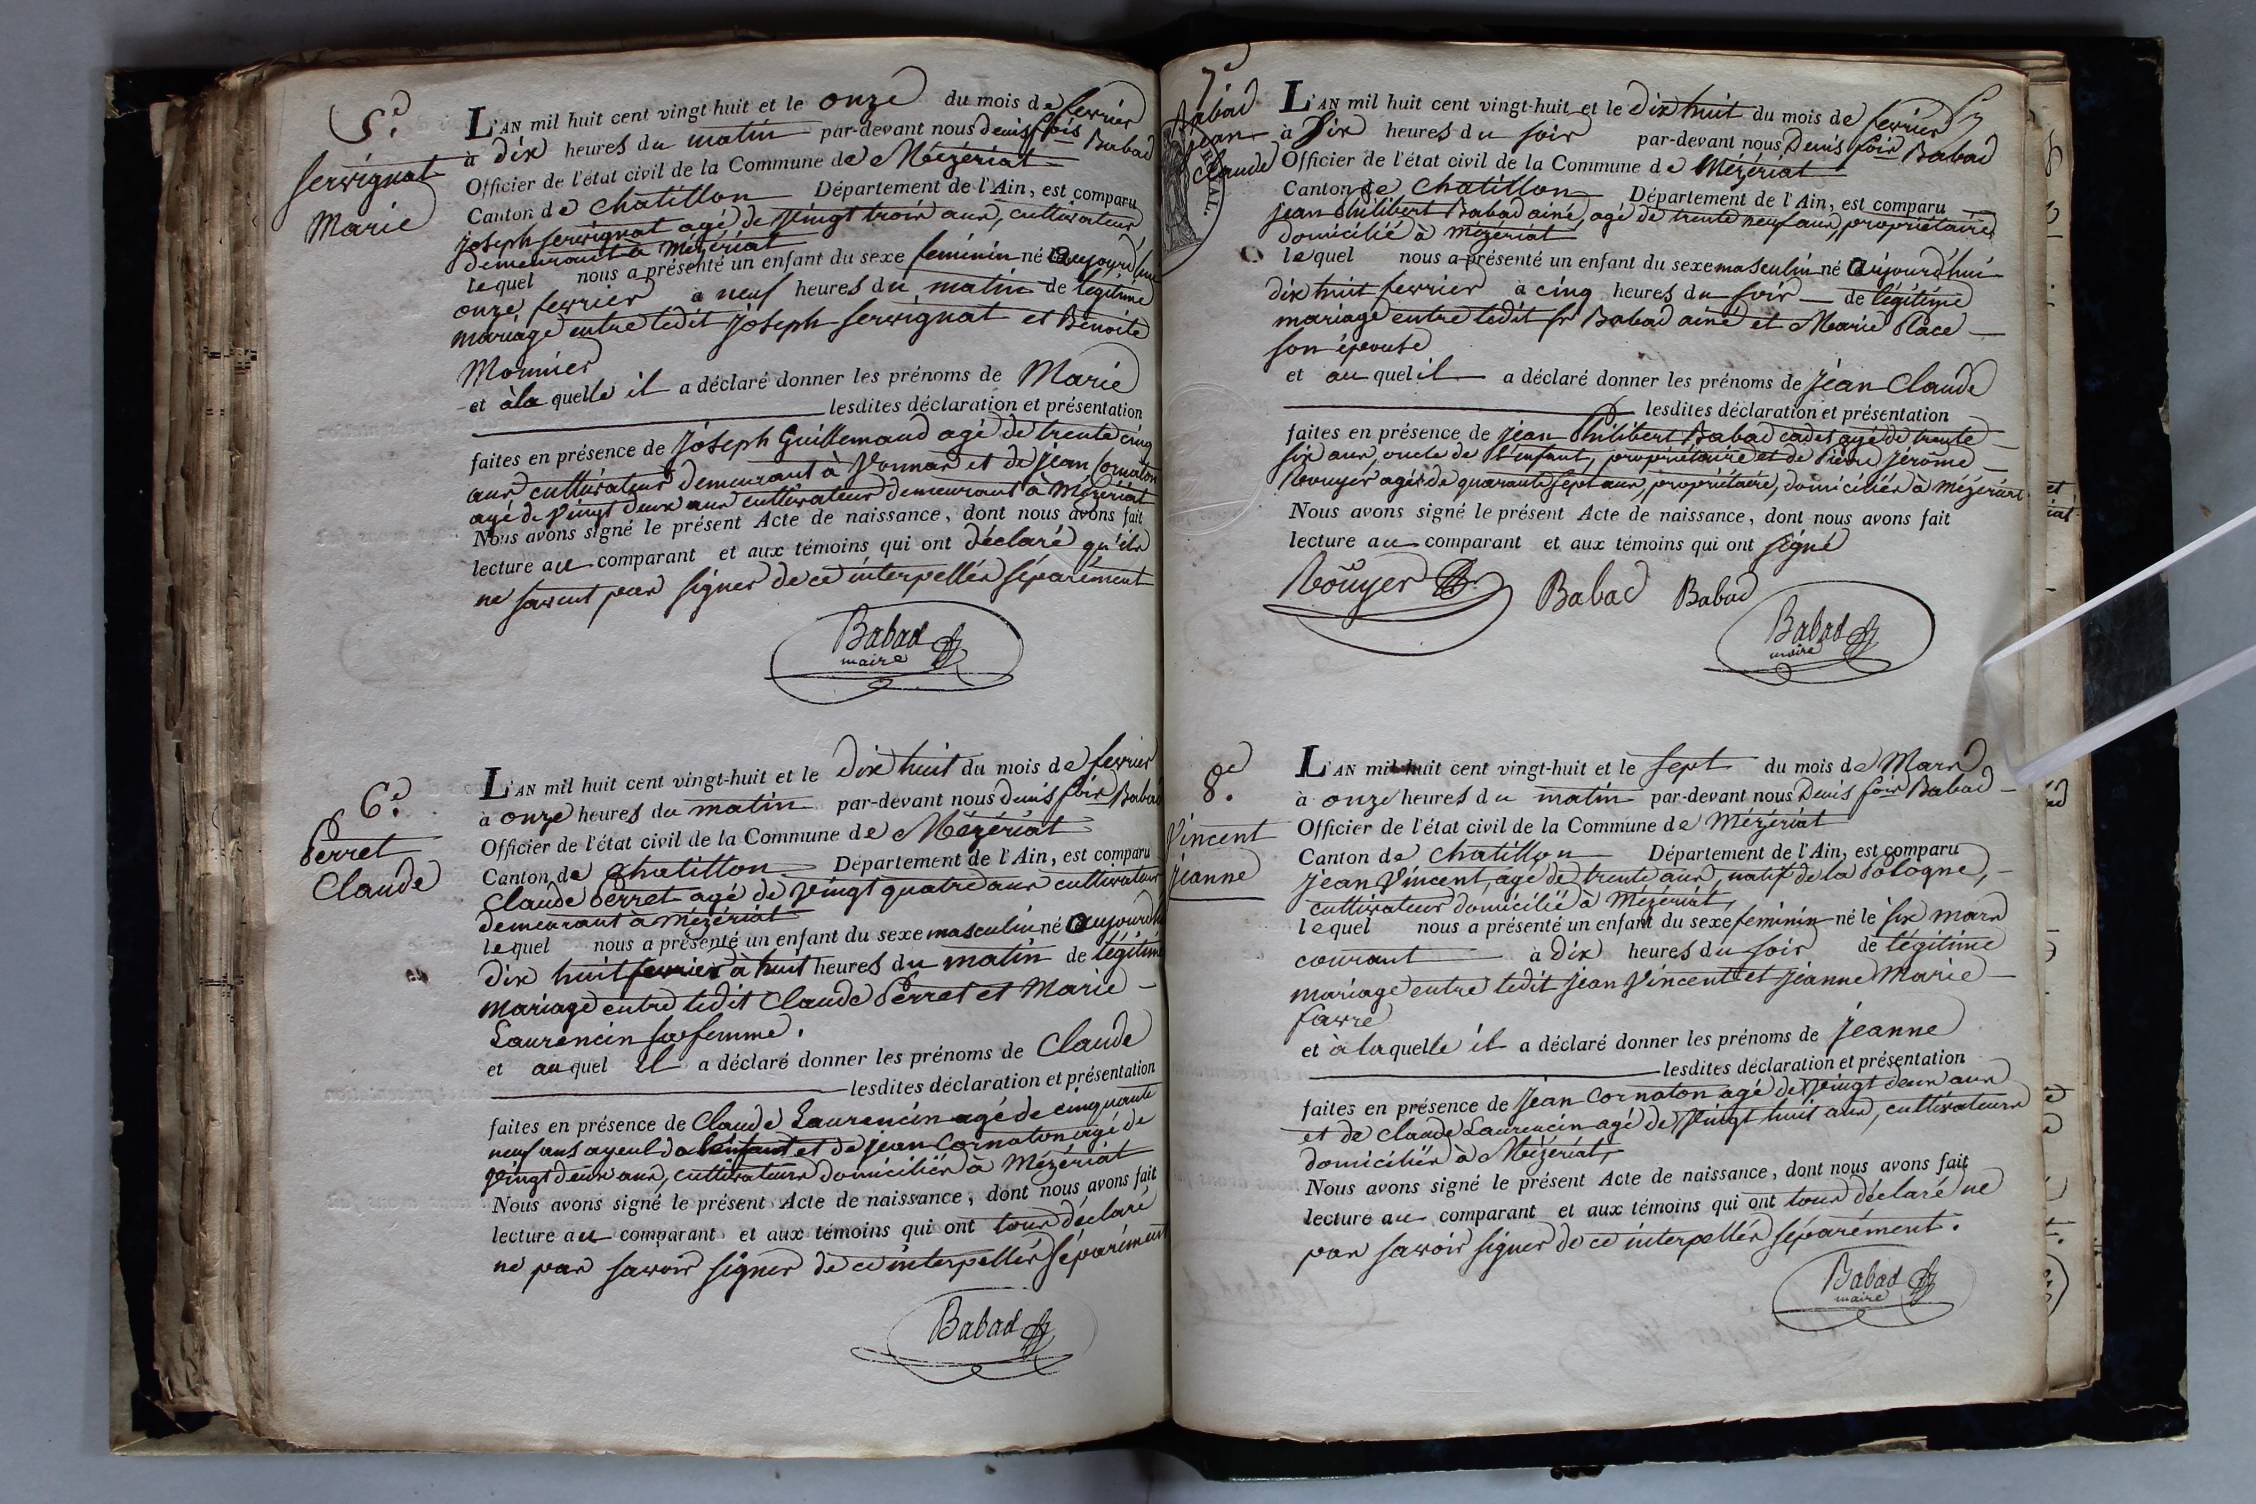 5e.
Servignat
Marie
L'AN mil huit cent vingt-huit et le onze du mois de fevrier
à dix heures du matin par-devant nous denis fois Babad
Officier de l'état civil de la Commune de Mézériat
Canton de Chatillon Département de l'Ain, est comparu
joseph servignat agé de vingt trois ans, cultivateur
demeurant à Mézériat
lequel nous a présenté un enfant du sexe feminin né aujourd'hui
onze fevrier à neuf heures du matin de legitime
mariage entre ledit joseph servignat et Benoite
Monnier
et à la quelle il a déclaré donner les prénoms de Marie
lesdites déclaration et présentation
faites en présence de joseph Guillemaud agé de trente cinq
ans cultivateur demeurant à Vonnas et de jean Cornaton
agé de vingt deux ans cultivateur demeurant à Mézériat
Nous avons signé le présent Acte de naissance, dont nous avons fait
lecture au comparant et aux témoins qui ont déclaré qu'ils
ne savent pas signer de ce interpellés séparément
Babad
maire
6e.
Perret
Claude
L'AN mil huit cent vingt-huit et le dix huit du mois de fevrier
à onze heures du matin par-devant nous denis fois Babad
Officier de l'état civil de la Commune de Mézériat
Canton de Chatillon Département de l'Ain, est comparu
Claude Perret agé de vingt quatre ans cultivateur
demeurant à Mézériat
lequel nous a présenté un enfant du sexe masculin né aujourd'hui
dix huit fevrier à huit heures du matin de légitime
mariage entre ledit Claude Perret et Marie
Laurencin sa femme.
et au quel il a déclaré donner les prénoms de Claude
lesdites déclaration et présentation
faites en présence de Claude Laurencin agé de cinquante
neuf ans ayeul de l'enfant et de jean Cornaton agé de
vingt deux ans, cultivateurs domiciliés à Mézériat
Nous avons signé le présent Acte de naissance, dont nous avons fait
lecture au comparant et aux témoins qui ont tous déclaré
ne pas savoir signer de ce interpellés séparément
Babad
7e
Babad
jean
Claude
L'AN mil huit cent vingt-huit et le dix huit du mois de fevrier
à six heures du soir par-devant nous Denis fois Babad
Officier de l'état civil de la Commune de Mézériat
Canton de Chatillon Département de l'Ain, est comparu
jean Philibert Babad ainé, agé de trente neuf ans, propriétaire
domicilié à Mézériat
lequel nous a présenté un enfant du sexe masculin né aujourd'hui
dix huit fevrier à cinq heures du soir de légitime
mariage entre ledit sr Babad ainé et Marie Place
son épouse
et au quel il a déclaré donner les prénoms de jean Claude
lesdites déclaration et présentation
faites en présence de jean Philibert Babad cadet agé de trente
six ans, oncle de l'enfant, propriétaire et de Pierre jérome
Rouyer agé de quarante sept ans, propriétaire, domiciliés à Mézériat
Nous avons signé le présent Acte de naissance, dont nous avons fait
lecture au comparant et aux témoins qui ont signé
Rouyer Babad Babad
Babad
maire
8e.
Vincent
jeanne
L'AN mil huit cent vingt-huit et le sept du mois de Mars
à onze heures du matin par-devant nous Denis fois Babad
Officier de l'état civil de la Commune de Mézériat
Canton de Chatillon Département de l'Ain, est comparu
jean Vincent, agé de trente ans, natif de la Pologne,
cultivateur domicilié à Mézériat,
lequel nous a présenté un enfant du sexe feminin né le six mars
courant à dix heures du soir de légitime
mariage entre ledit jean Vincent et jeanne Marie
favre
et à laquelle il a déclaré donner les prénoms de jeanne
lesdites déclaration et présentation
faites en présence de jean Cornaton agé de vingt deux ans
et de Claude Laurencin agé de vingt huit ans, cultivateurs
domiciliés à Mézériat,
Nous avons signé le présent Acte de naissance, dont nous avons fait
lecture au comparant et aux témoins qui ont tous déclaré ne
pas savoir signer de ce interpellés séparément.
Babad
maire